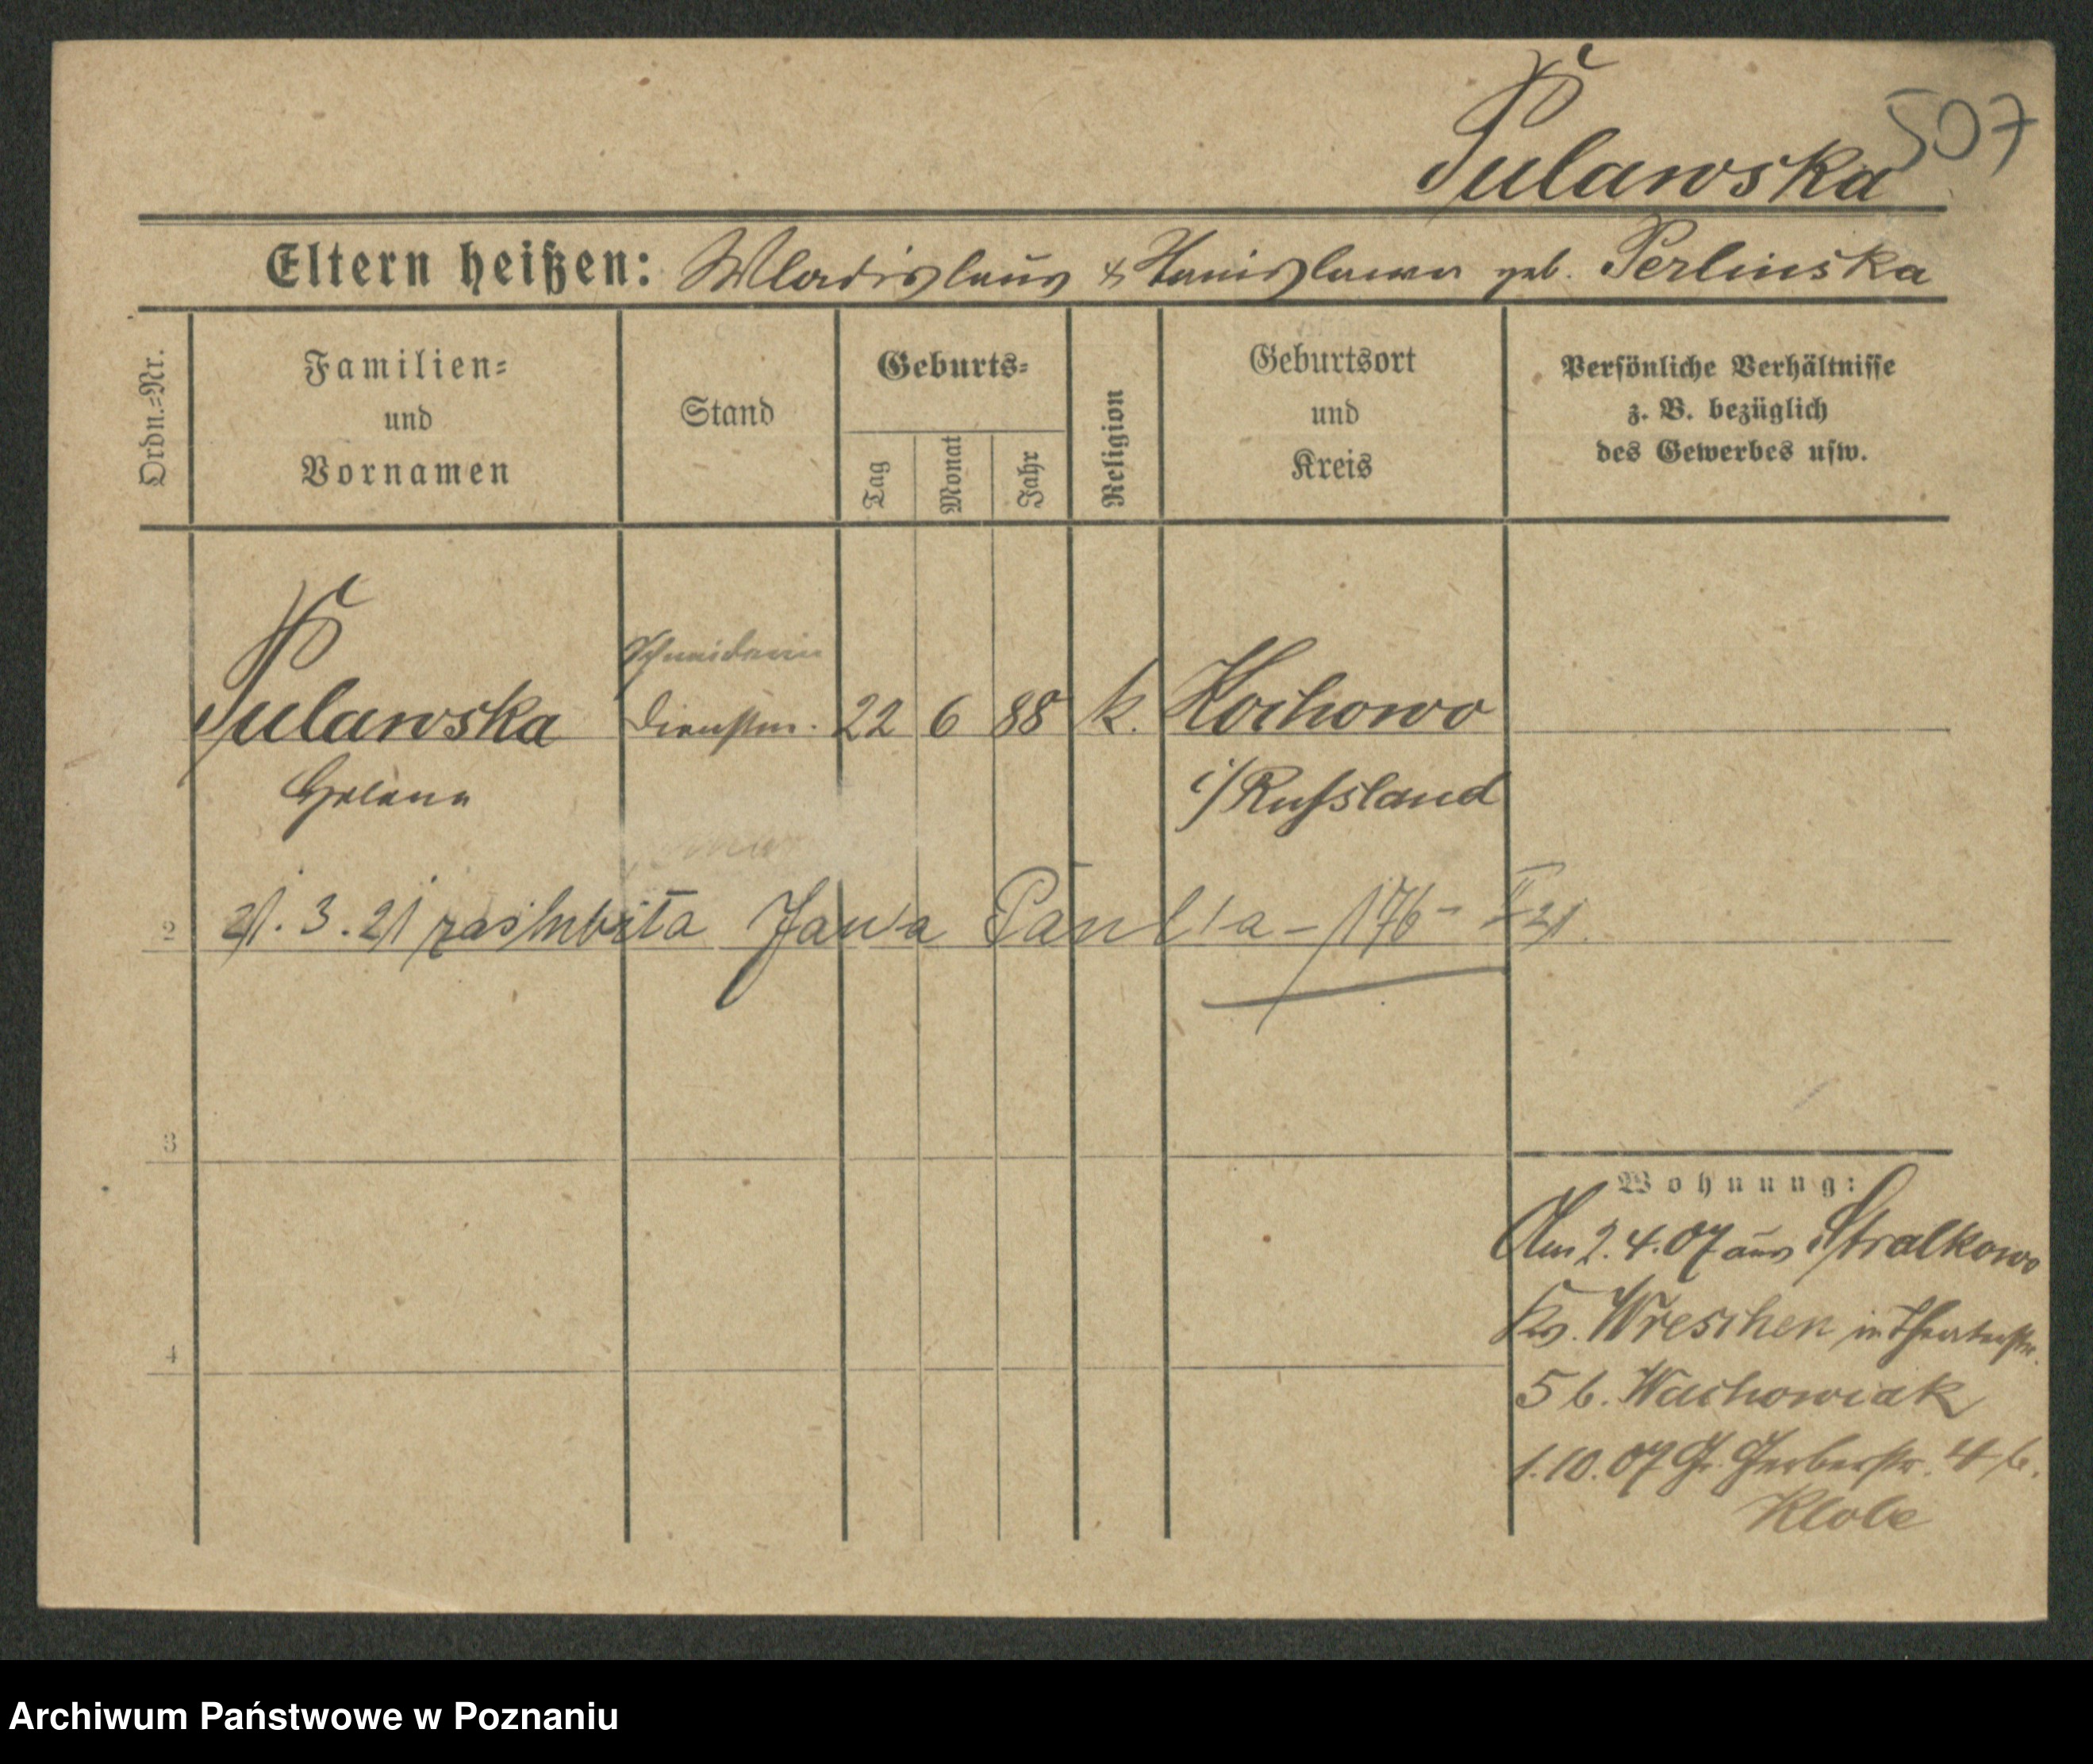 507
Pulawska
Eltern heißen: Wladislaus & Stanislawa geb. Perlinska
Ordn.=Nr.
Familien=
und
Vornamen
Stand
Geburts=
Tag
Monat
Jahr
Religion
Geburtsort
und
Kreis
Persönliche Verhältnisse
z. B. bezüglich
des Gewerbes usw.
Schneiderin
Pulawska Dienstm. 22 6 88 k. Kochowo
Helene i/Russland
2 21. 3. 21 zaślubiła Jana 176 - II 21
3
4
Wohnung:
Am 2. 4. 07 aus Stralkowo
Krs. Wreschen in Theaterstr.
5 b. Wachowiak
1. 10. 07 Gr. Gerberstr. 4 b.
Klobe
Archiwum Państwowe w Poznaniu